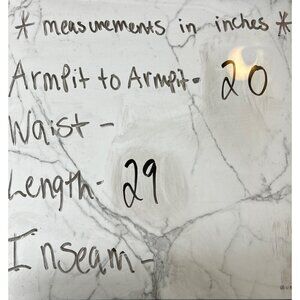 * measurements in inches *
Armpit to Armpit- 20
Waist -
Length- 29
Inseam-